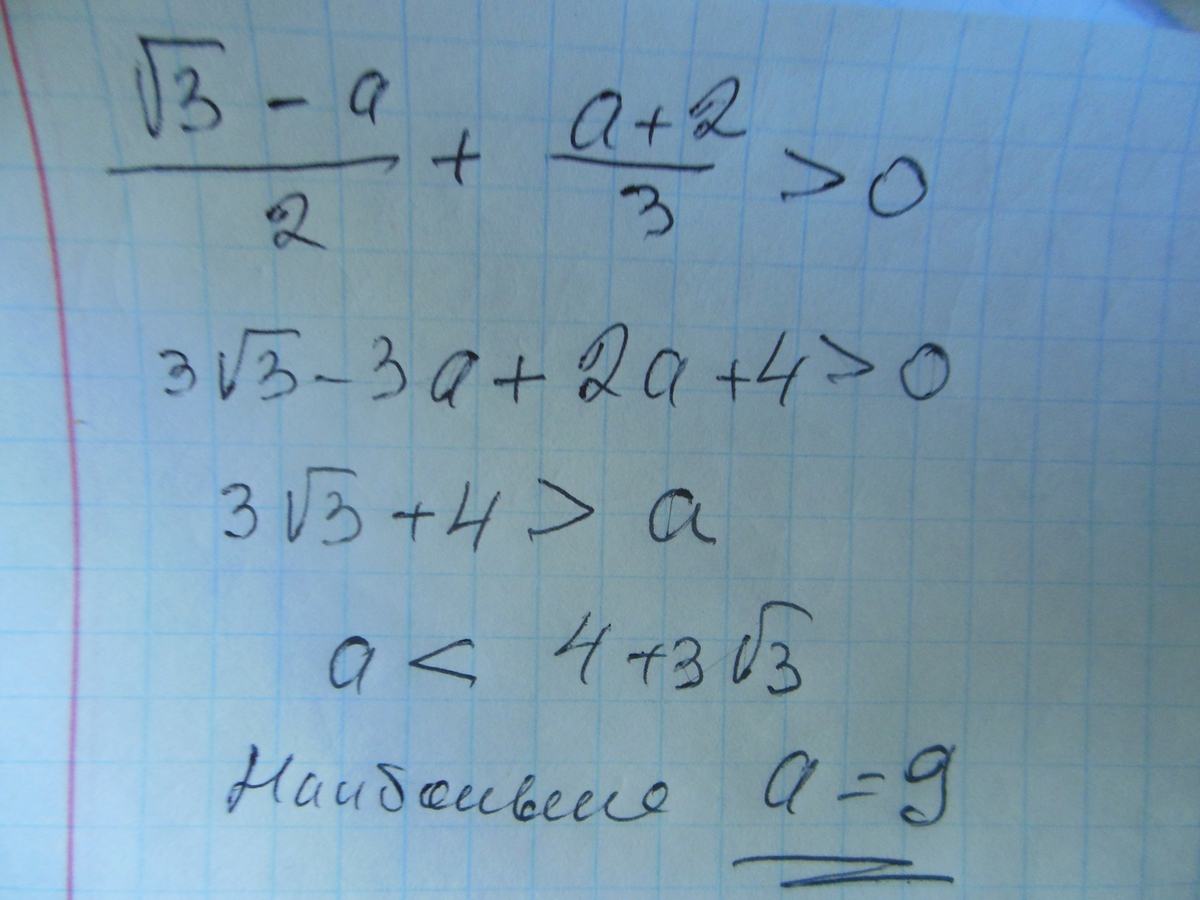 (√3 - a)/2 + (a+2)/3 > 0
3√3 - 3a + 2a + 4 > 0
3√3 + 4 > a
a < 4 + 3√3
Наибольшее a = 9